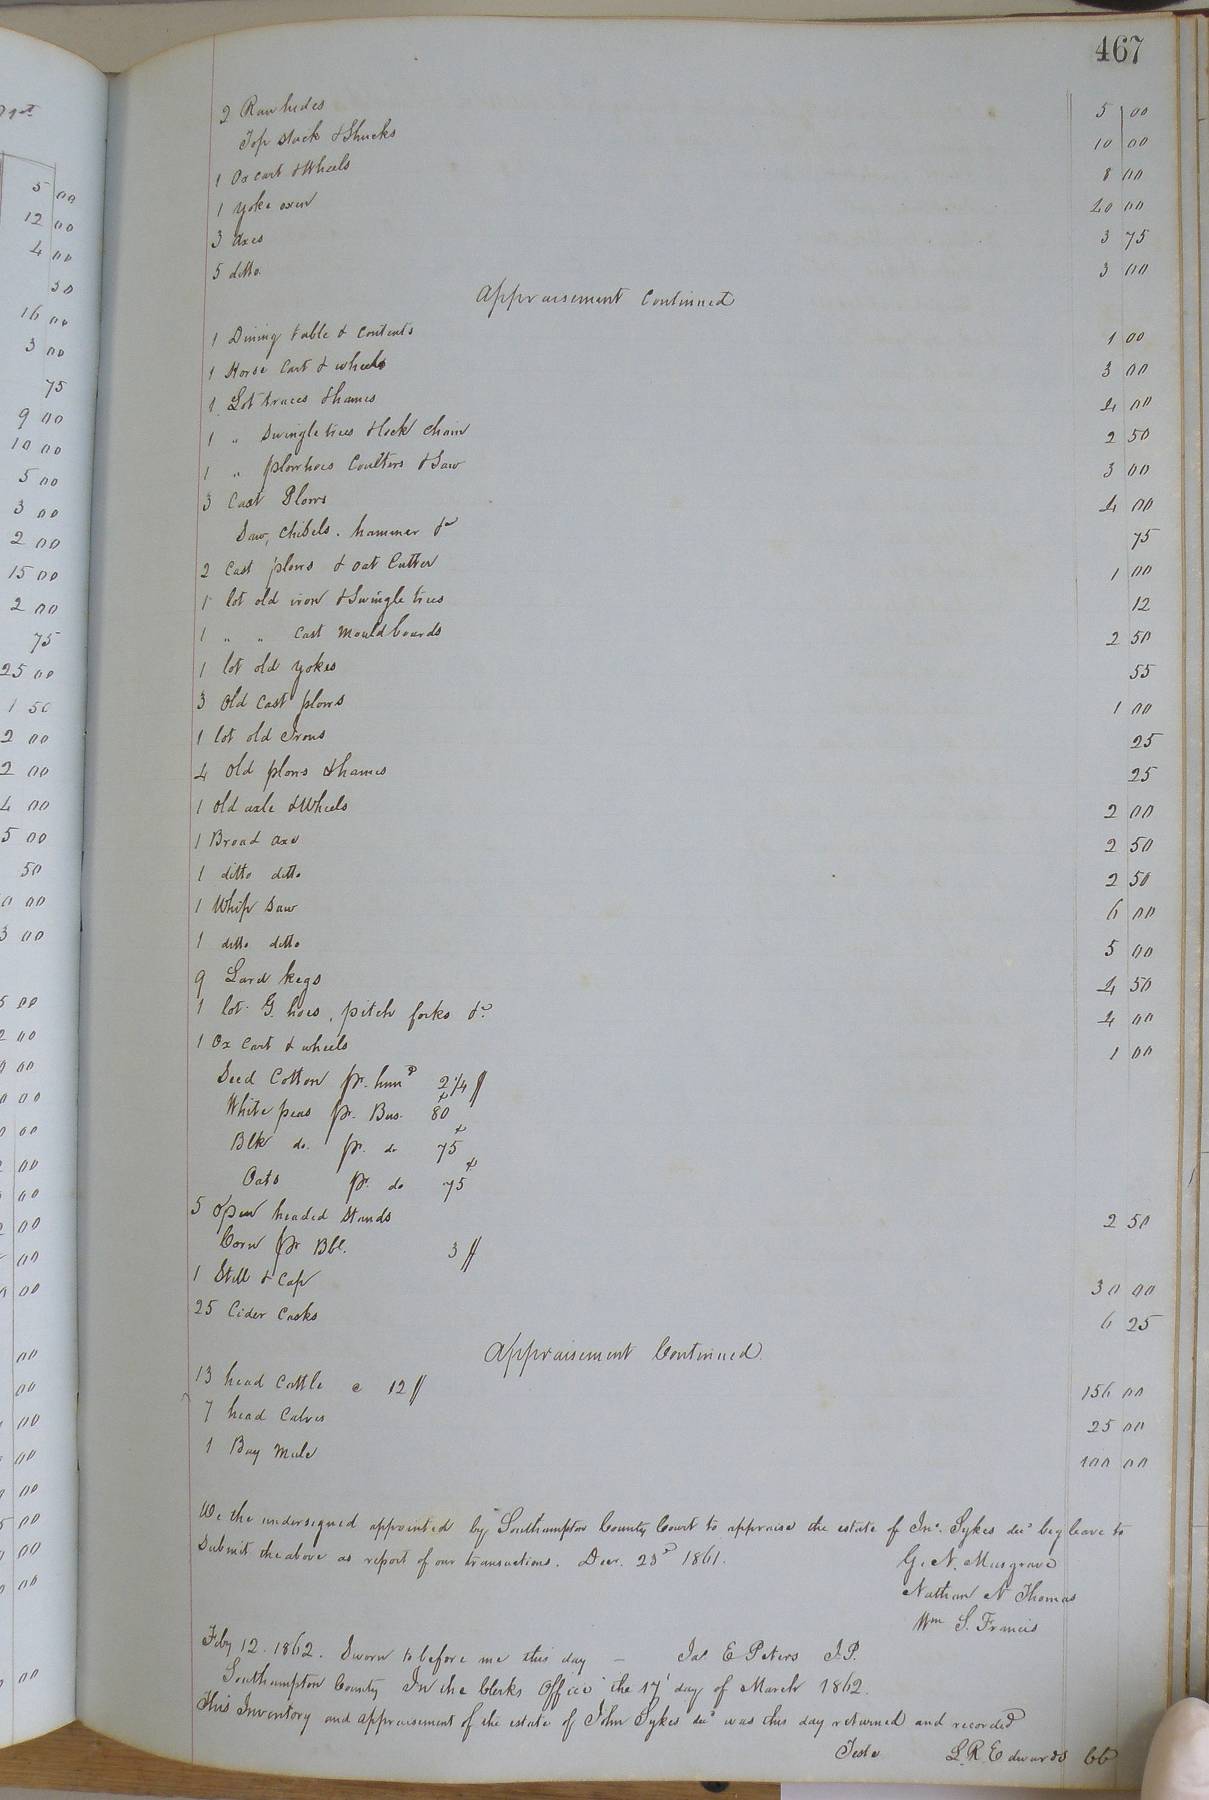 467
2 Raw hides 5 00
Top stack & Shucks 10 00
1 Ox cart & Wheels 8 00
1 yoke oxen 40 00
3 Axes 3 75
5 ditto 3 00
Appraisement Continued
1 Dining table & contents 1 00
1 Horse Cart & wheels 3 00
1 Lot traces & hames 4 00
1 " Swingletrees & lock chain 2 50
1 " plowhoes Coulters & Saw 3 00
3 Cast Plows 4 00
Saw, Chisels. hammer &c 75
2 Cast plows & oat Cutter 1 00
1 lot old iron & Swingle trees 12
1 " " Cast Mouldboards 2 50
1 lot old yokes 55
3 Old Cast plows 1 00
1 lot old Irons 25
4 Old plows & hames 25
1 Old axle & Wheels 2 00
1 Broad axe 2 50
1 ditto ditto 2 50
1 Whip Saw 6 00
1 ditto ditto 5 00
9 Lard kegs 4 50
1 lot G. hoes, pitch forks &c 4 00
1 Ox Cart & wheels 1 00
Seed Cotton pr. hund 2 1/4 //
White peas pr. Bus. 80
Blk do. pr. do 75
Oats pr. do 75
5 Open headed Stands 2 50
Corn pr Bbl. 3 //
1 Still & Cap 30 00
25 Cider Casks 6 25
Appraisement Continued.
13 head Cattle @ 12 // 156 00
7 head Calves 25 00
1 Bay Mule 100 00
We the undersigned appointed by Southampton County Court to appraise the estate of Jno. Sykes decd beg leave to
Submit the above as report of our transactions. Decr. 23d 1861.
G. N. Musgrave
Nathan N Thomas
Wm S. Francis
Feby 12. 1862. Sworn to before me this day — Jas E Peters J.P.
Southampton County In the Clerks Office the 17 day of March 1862.
This Inventory and appraisement of the estate of John Sykes decd was this day returned and recorded
Teste L. R. Edwards CC